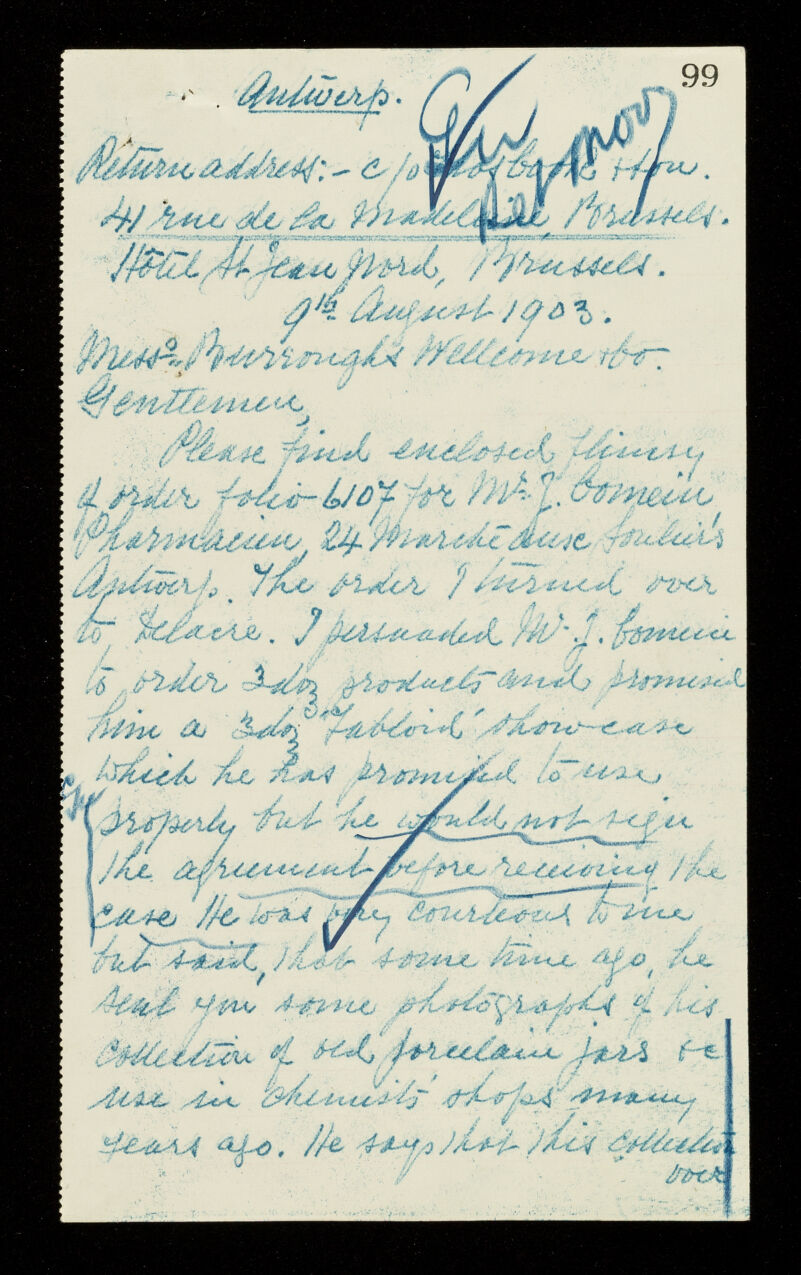 99
Antwerp.
Return address:- c/o Thos Cook & Son.
41 rue de la Madeleine, Brussels.
Hôtel St Jean Nord, Brussels.
9th August 1903.
Messrs. Burroughs Wellcome & Co.
Gentlemen,
Please find enclosed flimsy
of order folio 6107 for Mr. J. Comein,
Pharmacien, 24 Marché aux Souliers
Antwerp. The order I turned over
to Delacre. I persuaded Mr. J. Comein
to order 3doz products and promised
him a 3doz 'Tabloid' show-case
which he has promised to use
properly but he would not sign
the agreement before receiving the
case He was very courteous to me
but said, that some time ago, he
sent you some photographs of his
collection of old porcelain jars &c
use in chemists' shops many
years ago. He says that this collection
over